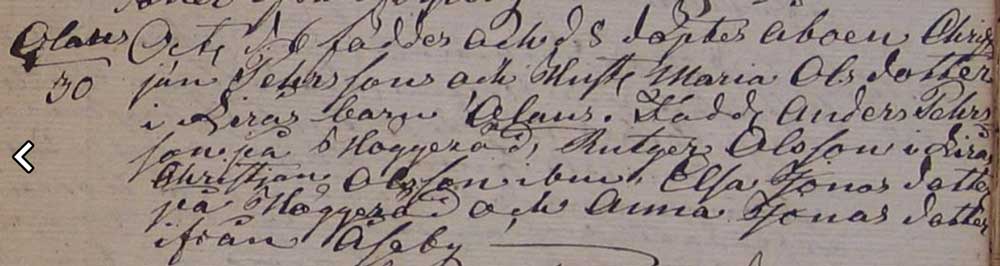 Olaus Oct, d. 6 föddes och d 8 döptes aboen Chris
30 jan Pehrssons och Hust, Maria Olsdotter
i Liras barn Olaus. Fadd, Anders Pehrs
son på Häggeröd, Rutger Olsson i Lira
Christian Olsson ibm, Elsa Jonas dotter
på Häggeröd och Anna Jonas dotter
ifrån Åseby